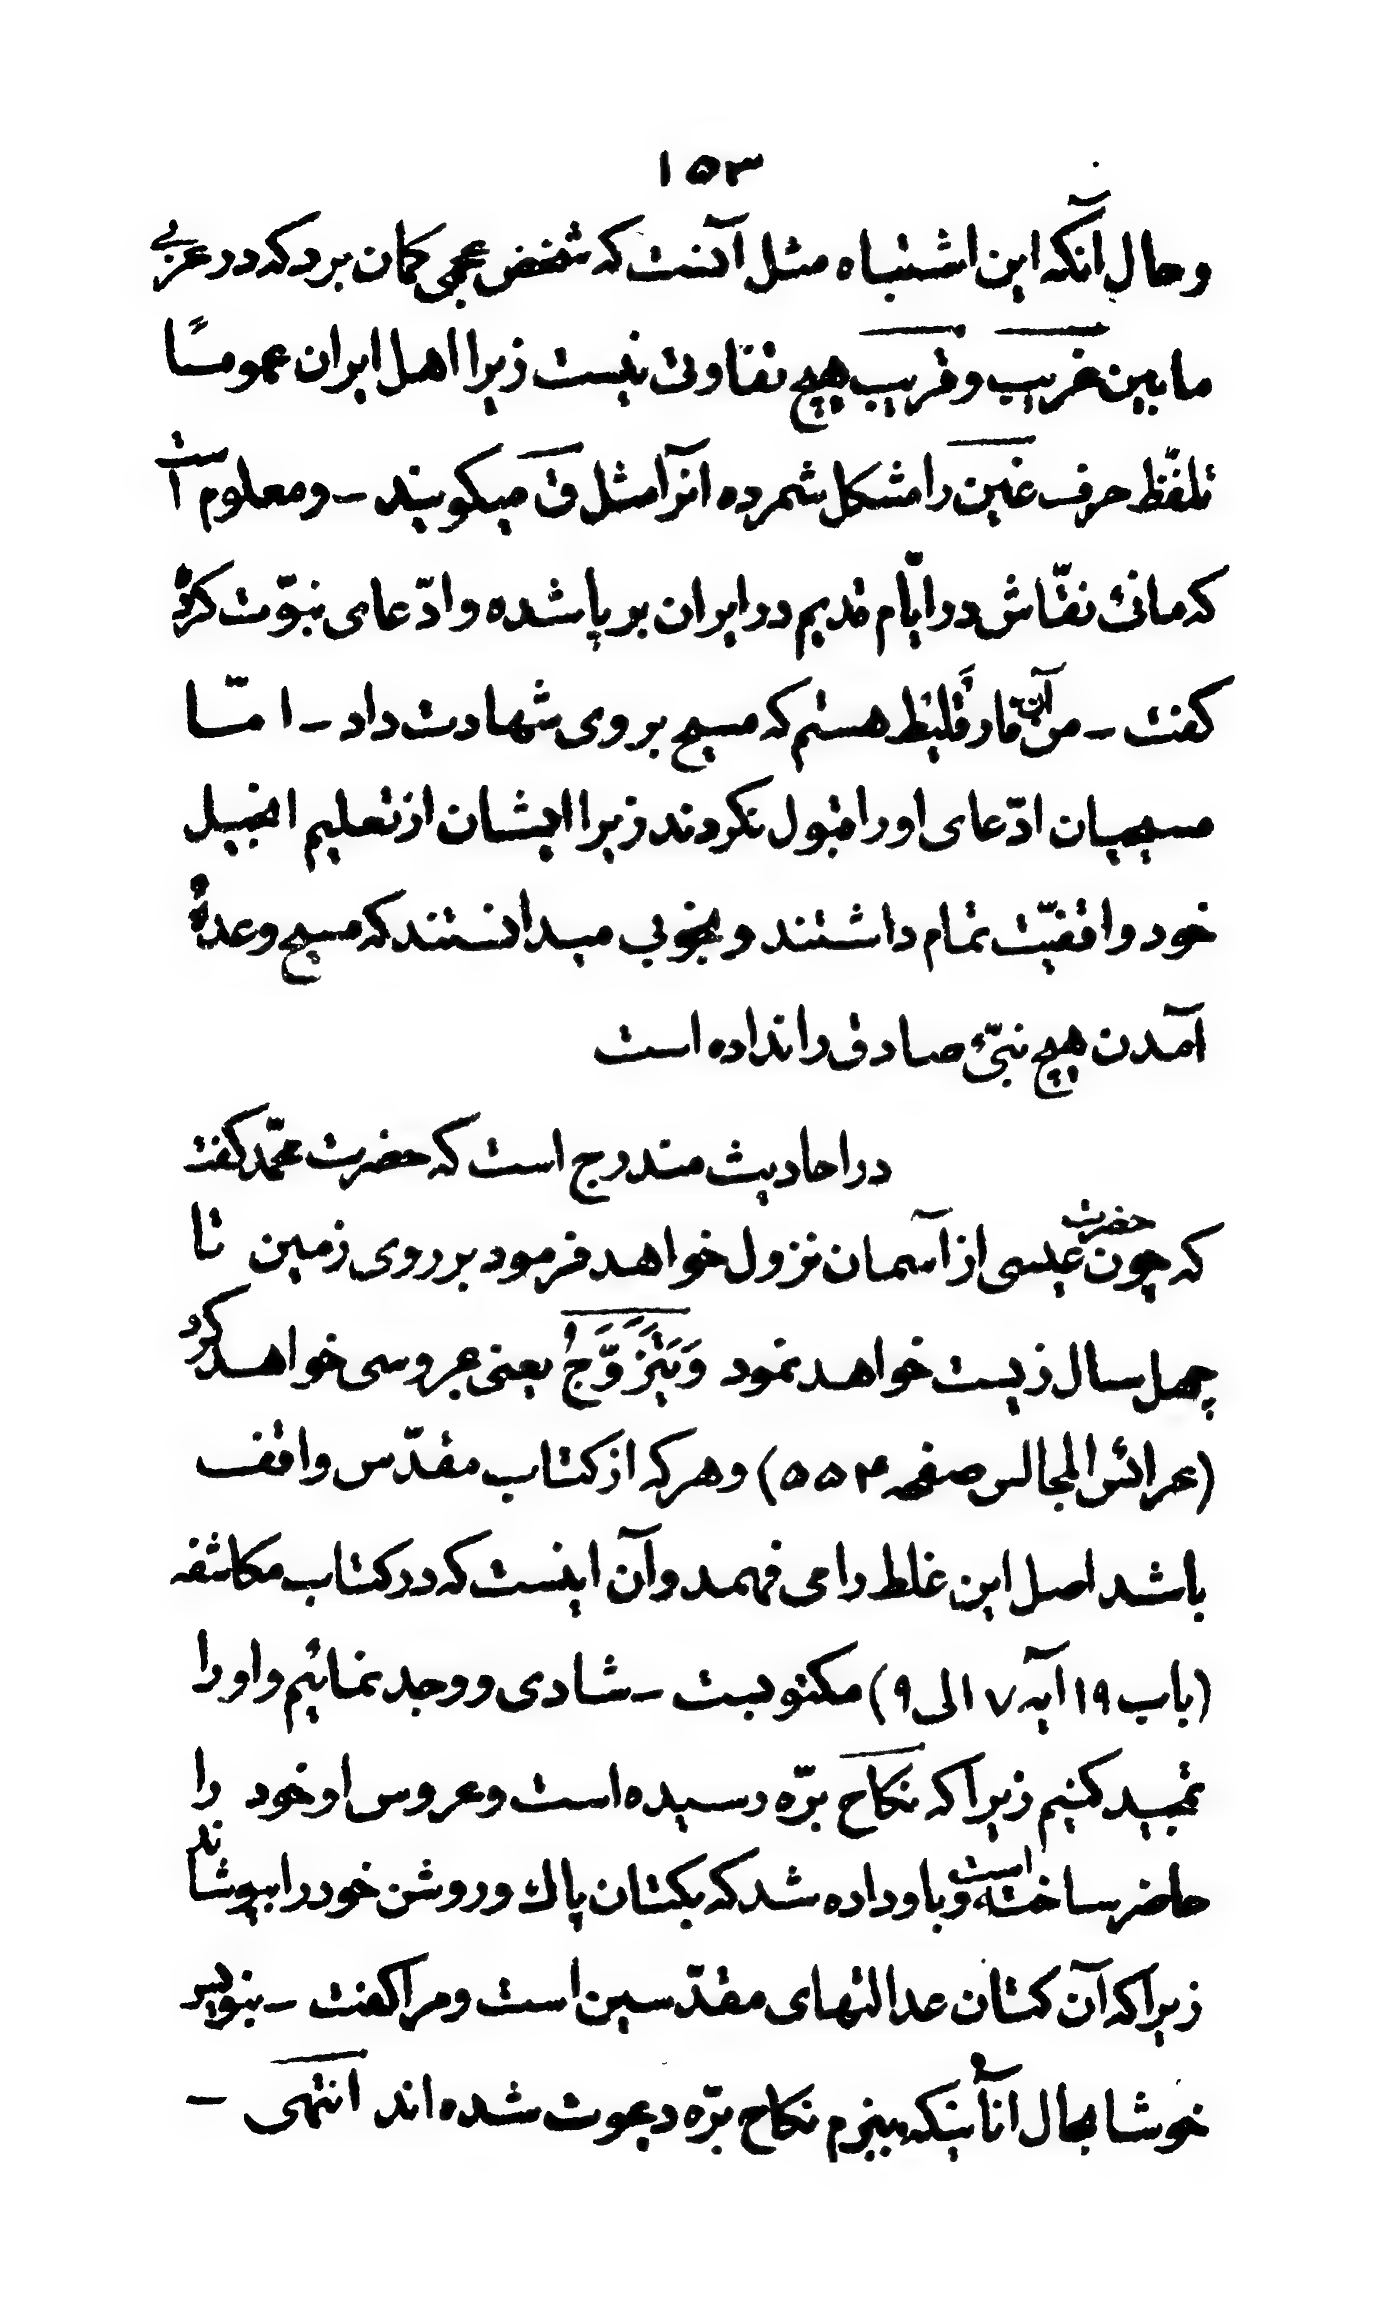 ۱۵۳
وحال آنکه این اشتباه مثل آنست که شخص عجمی کمان برد که در عربی
مابین غریب وقریب هیچ تفاوتی نیست زیرا اهل ایران عموماً
تلفّظ حرف غین را مشکل شمرده انرا مثل ق میکویند – ومعلوم است
که مانیٔ نقّاش در ایّام قدیم در ایران برپا شده وادّعای نبوّت کرده
کفت – من آن فارقلیط هستم که مسیح بروی شهادت داد – امّا
مسیحیان ادّعای اورا قبول نکردند زیرا ایشان از تعلیم انجیل
خود واقفیّت تمام داشتند وبخوبی میدانستند که مسیح وعدهٔ
آمدن هیچ نبیٔ صادق را نداده است
در احادیث مندرج است که حضرت محمّد کفت
که چون حضرت عیسی از آسمان نزول خواهد فرمود بر روی زمین تا
چهل سال زیست خواهد نمود وَیَتَزَوَّجُ یعنی عروسی خواهد کرد
(عرائس المجالس صفحه ۵۵۴) وهرکه از کتاب مقدّس واقف
باشد اصل این غلط را می فهمد وآن اینست که در کتاب مکاشفه
(باب ۱۹ آیه ۷ الی ۹) مکتوبست – شادی ووجد نمائیم واورا
تمجید کنیم زیرا که نکاح برّه رسیده است وعروس او خود را
حاضر ساخته است وباو داده شد که بکتان پاك وروشن خودرا بپوشاند
زیرا که آن کتان عدالتهای مقدّسین است ومرا کفت – بنویس
خوشا بحال آنانیکه ببزم نکاح برّه دعوت شده اند انتهی –